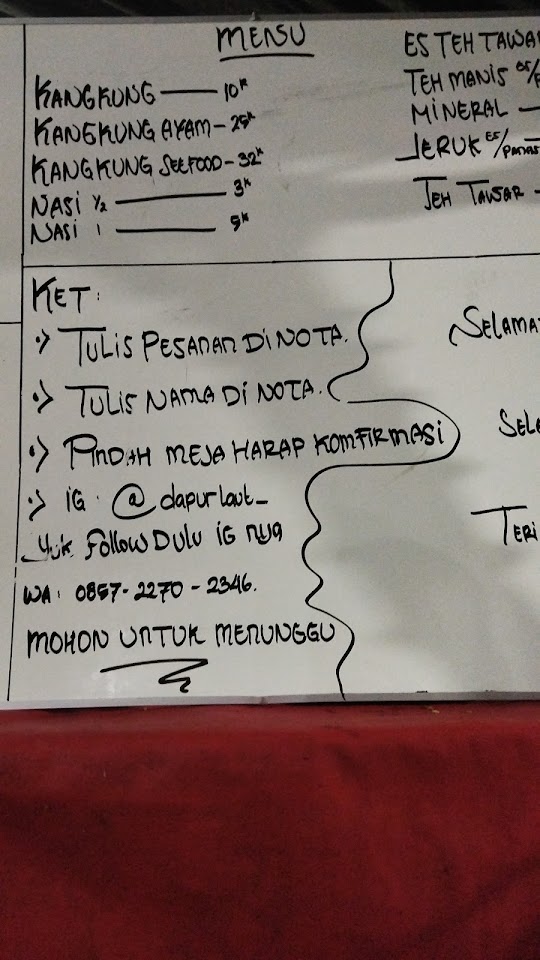 MENU
KANGKUNG — 10K
KANGKUNG AYAM - 25K
KANGKUNG SEEFOOD - 32K
NASI 1/2 — 3K
NASI 1 — 5K
ES TEH TAWAR
TEH MANIS ES/
MINERAL —
JERUK ES/PANAS
TEH TAWAR -
KET:
TULIS PESANAN DI NOTA.
TULIS NAMA DI NOTA.
PINDAH MEJA HARAP KOMFIRMASI
IG. @_dapurlaut_
Yuk. Follow DULU IG NYA
WA: 0857-2270-2346.
MOHON UNTUK MENUNGGU
SELAMA
SELA
TERI